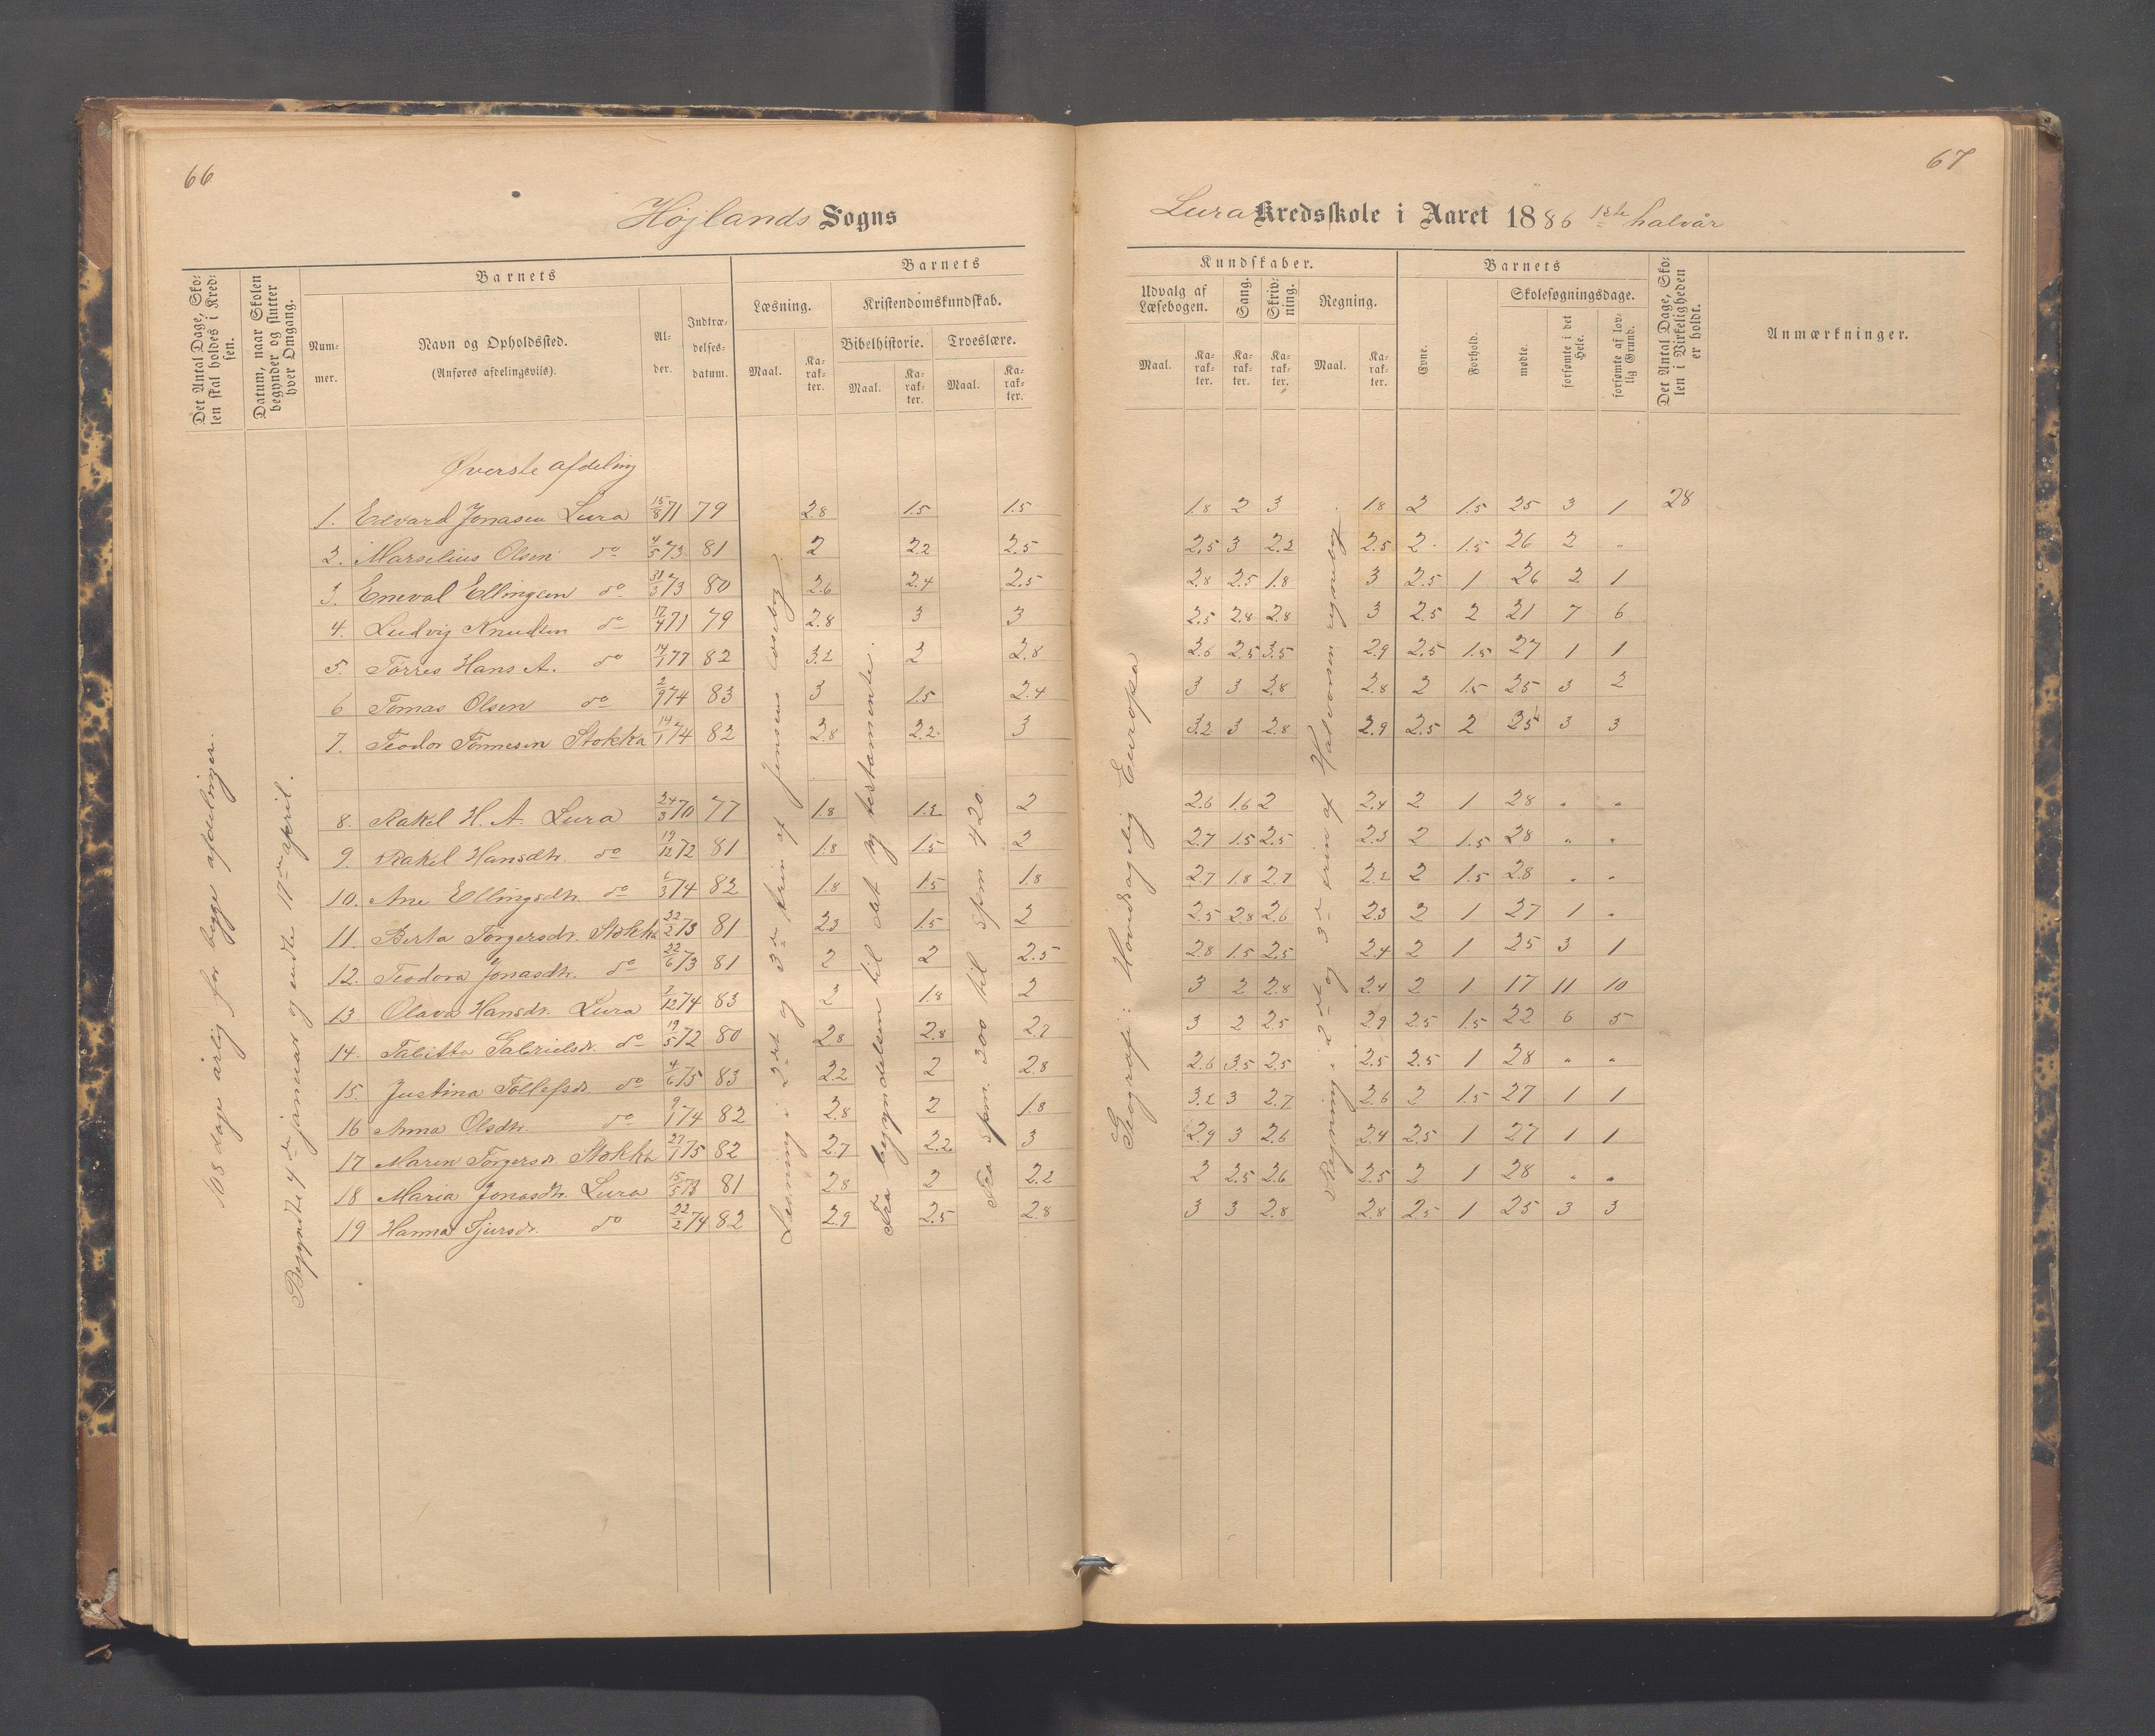 66
Højlands Sogns
Det Antal Dage, Sko-
len skal holdes i Kred-
sen.
Datum, naar Skolen
begynder og slutter
hver Omgang.
Barnets
Num-
mer.
Navn og Opholdssted.
(Anføres afdelingsviis).
Al-
der.
Indtræ-
delses-
datum.
Barnets
Læsning.
Kristendomskundskab.
Bibelhistorie. Troeslære.
Maal. Ka-
rak-
ter. Maal. Ka-
rak-
ter. Maal. Ka-
rak-
ter.
Øverste afdeling
1. Edvard Jonasen Lura 15/8 71 79 2.8 1.5 1.5
2. Marselius Olsen do 4/5 73 81 2 2.2 2.5
3. Eneval Ellingsen do 31/3 73 80 2.6 2.4 2.5
4. Ludvig Knudsen do 17/4 71 79 2.8 3 3
5. Tørres Hans A. do 14/1 77 82 3.2 2 2.8
6 Tomas Olsen do 2/9 74 83 3 1.5 2.4
7. Teodor Tønnesen Stokka 14/1 74 82 2.8 2.2 3
8. Rakel H. A. Lura 24/3 70 77 1.8 1.2 2
9. Rakel Hansdtr. do 19/12 72 81 1.8 1.5 2
10. Ane Ellingsdtr. do 6/3 74 82 1.8 1.5 1.8
11. Berta Torgersdr. Stokka 22/2 73 81 2.3 1.5 2
12. Teodora Jonasdtr. do 22/6 73 81 2 2 2.5
13. Olava Hansdr. Lura 7/12 74 83 2 1.8 2
14. Tabitta Gabrielsdr. do 19/5 72 80 2.8 2.8 2.7
15. Justina Tollefsdr. do 4/6 75 83 2.2 2 2.8
16 Anna Olsdtr. do 9/1 74 82 2.8 2 1.8
17 Maren Torgersdr Stokka 27/1 75 82 2.7 2.2 3
18 Maria Jonasdtr. Lura 15/5 73 81 2.8 2 2.2
19 Hanna Tjursdr. do 22/2 74 82 2.9 2.5 2.8
168 dage årlig for begge afdelinger.
Begyndte 4de januar og endte 17de april.
Læsning i 2det og 3de trin af Jensens læsebog.
Fra begyndelsen til det ny testamente.
Fra spm. 300 til spm 420.
67
Lura Kredsskole i Aaret 1886 1ste halvår
Kundskaber.
Udvalg af
Læsebogen.
Sang.
Skriv-
ning.
Regning.
Maal. Ka-
rak-
ter. Ka-
rak-
ter. Ka-
rak-
ter. Maal. Ka-
rak-
ter.
Barnets
Evne.
Forhold.
Skolesøgningsdage.
mødte.
forsømte i det
Hele.
forsømte af lov-
lig Grund.
Det Antal Dage, Sko-
len i Virkeligheden
er holdt.
Anmærkninger.
1.8 2 3 1.8 2 1.5 25 3 1 28
2.5 3 2.2 2.5 2 1.5 26 2 "
2.8 2.5 1.8 3 2.5 1 26 2 1
2.5 2.8 2.8 3 2.5 2 21 7 6
2.6 2.5 3.5 2.9 2.5 1.5 27 1 1
3 3 2.8 2.8 2 1.5 25 3 2
3.2 3 2.8 2.9 2.5 2 25 3 3
2.6 1.6 2 2.4 2 1 28 " "
2.7 1.5 2.5 2.3 2 1.5 28 " "
2.7 1.8 2.7 2.2 2 1.5 28 " "
2.5 2.8 2.6 2.3 2 1 27 1 "
2.8 1.5 2.5 2.4 2 1 25 3 1
3 2 2.8 2.4 2 1 17 11 10
3 2 2.5 2.9 2.5 1.5 22 6 5
2.6 3.5 2.5 2.5 2.5 1 28 " "
3.2 3 2.7 2.6 2 1.5 27 1 1
2.9 3 2.6 2.4 2.5 1 27 1 1
2 2.5 2.6 2.5 2 1 28 " "
3 3 2.8 2.8 2.5 1 25 3 3
Geografi: Hovedsagelig Europa
Regning i 2det og 3de trin af Halvorsen regnebog.